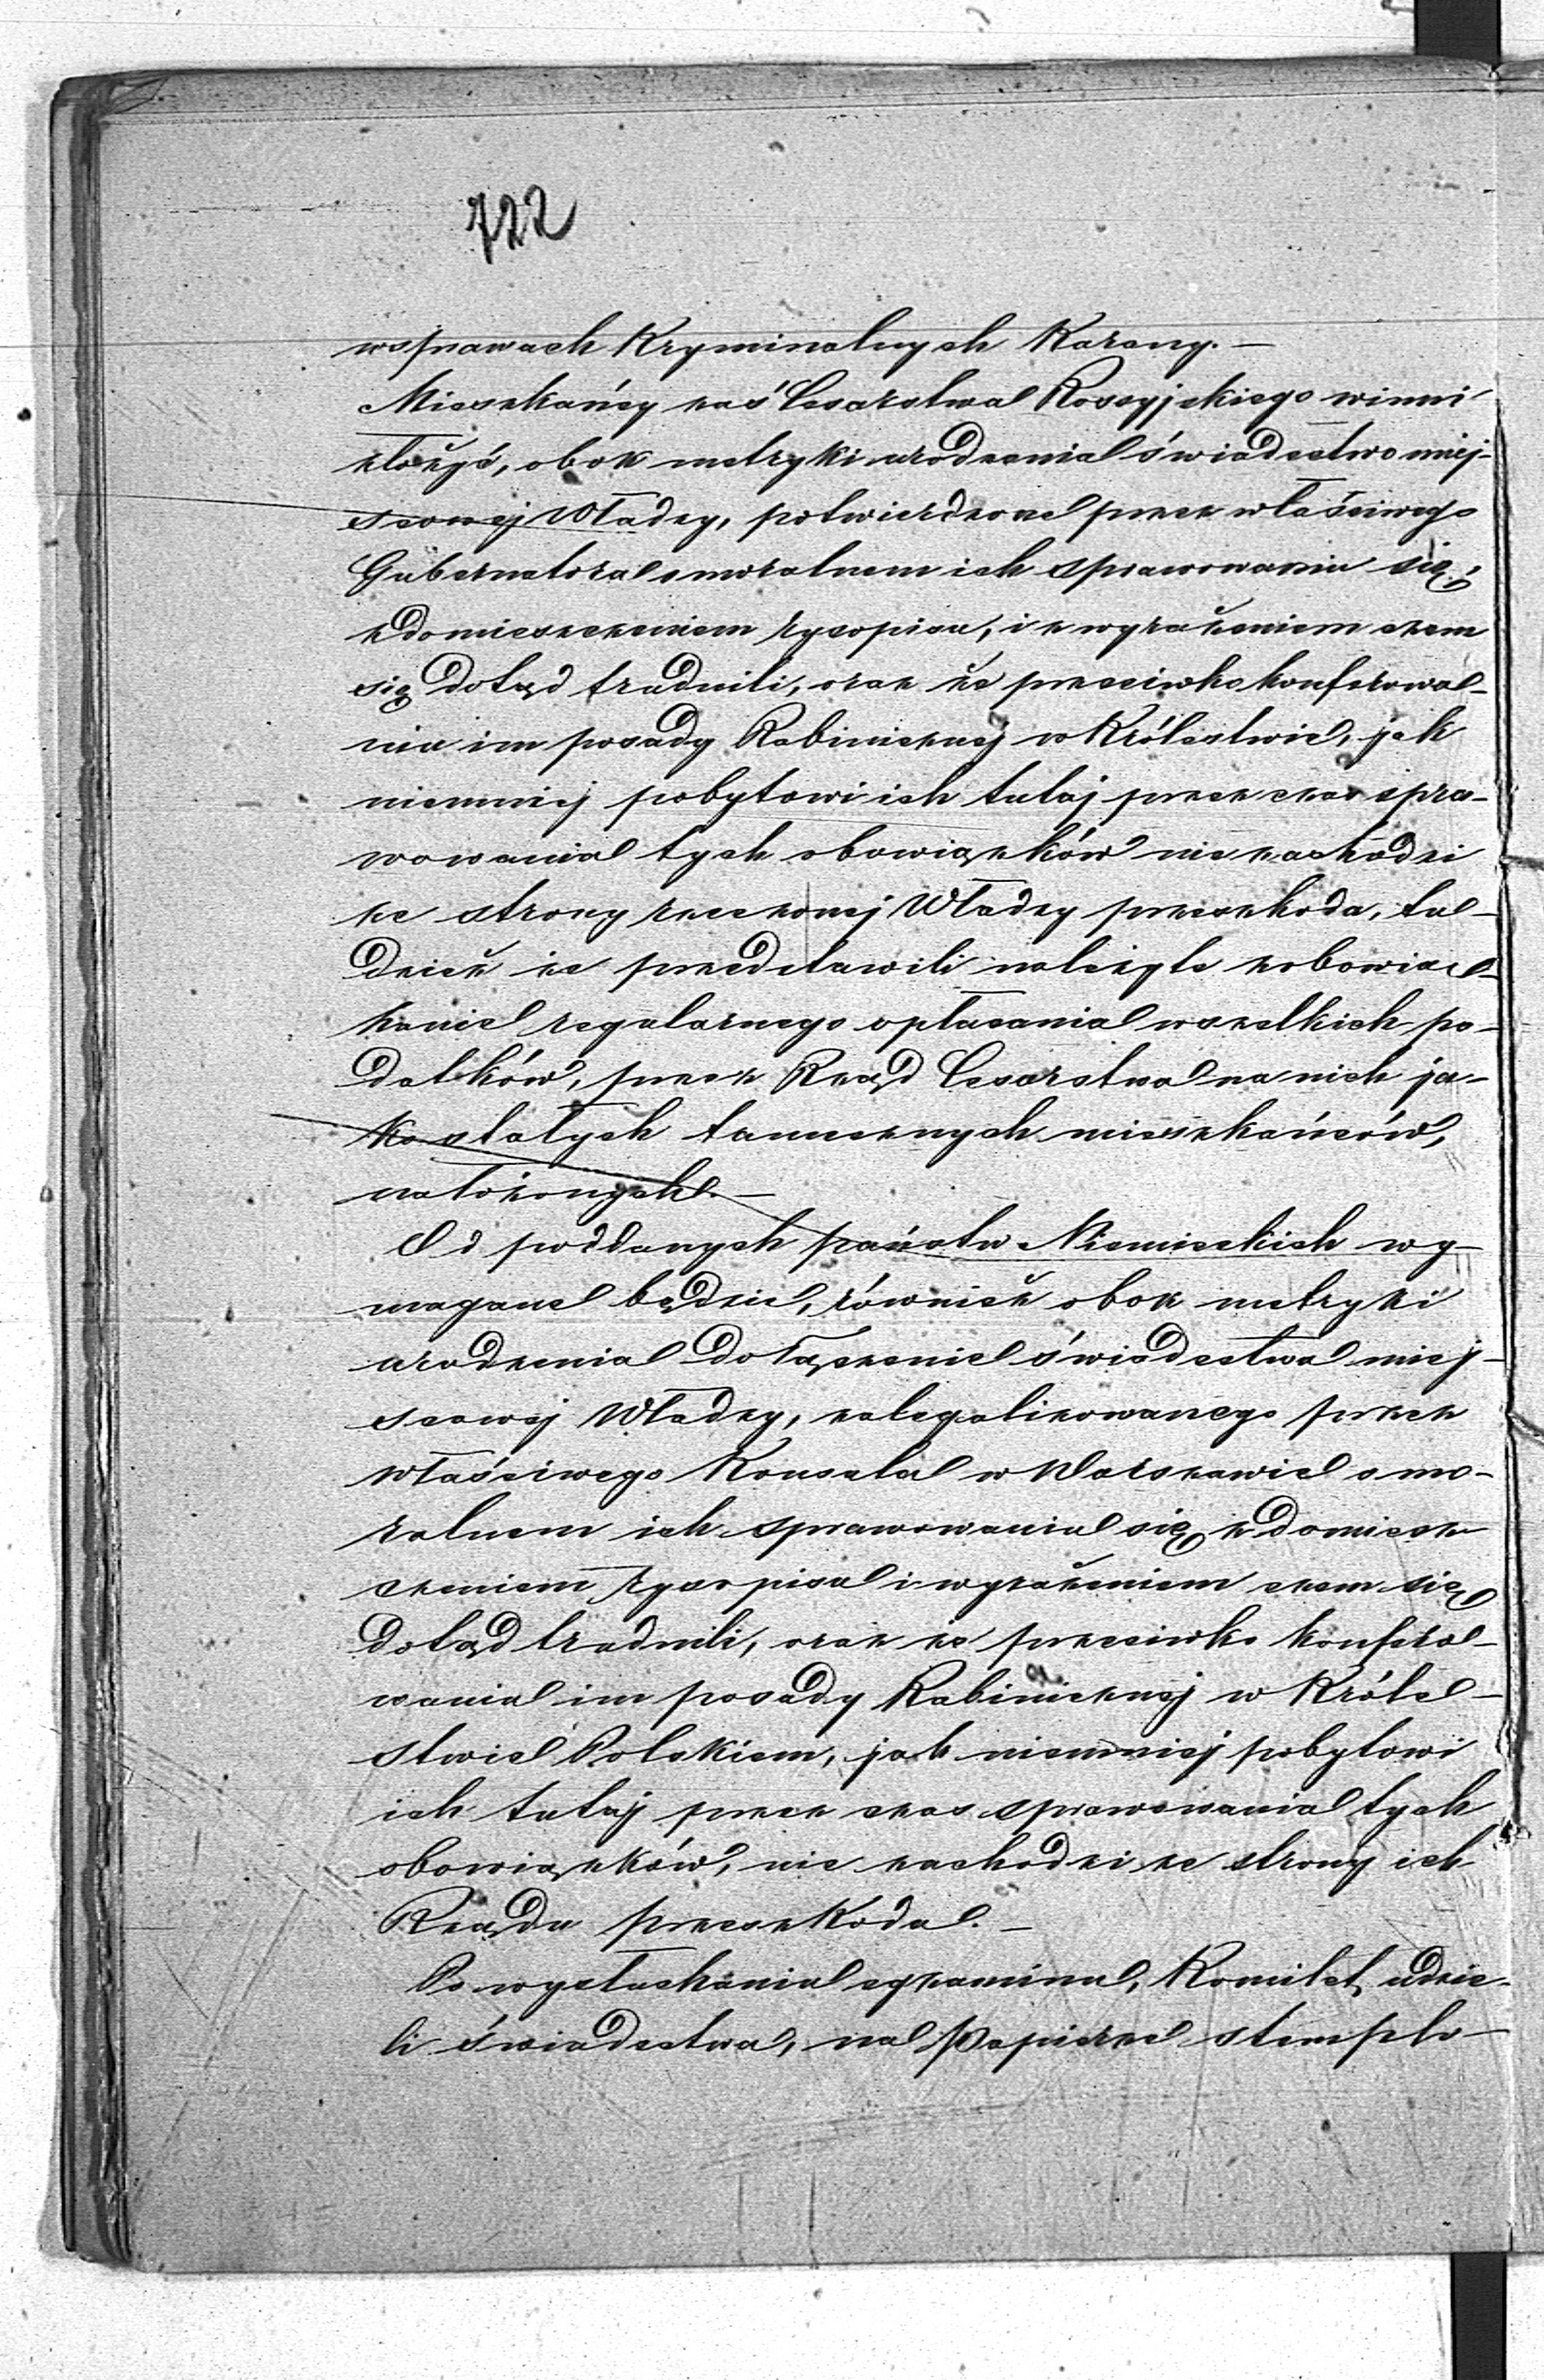 722
w sprawach Kryminalnych Karany.—
Mieszkańcy zaś Cesarstwa Rossyjskiego winni
złożyć, obok metryki urodzenia świadectwo miej-
scowej Władzy, potwierdzone przez właściwego
Gubernatora o moralnem ich sprawowaniu się,
z domieszczeniem rysopisu, i z wyrażeniem czem
się dotąd trudnili, oraz że przeciwko konferowa-
niu im posady Rabinicznej w Królestwie, jak
niemniej pobytowi ich tutaj przez czas spra-
wowania tych obowiązków nie zachodzi
ze strony rzeczonej Władzy przeszkoda, tu-
dzież że przedstawili należyte zobowią-
zanie regularnego opłacania wszelkich po-
datków, przez Rząd Cesarstwa na nich ja-
ko stałych tamecznych mieszkańców,
nałożonych.—
Od poddanych państw Niemieckich wy-
magane będzie, również obok metryki
urodzenia dołączenie świadectwa miej-
scowej Władzy, zalegalizowanego przez
właściwego Konsula w Warszawie o mo-
ralnem ich sprawowaniu się z domiesz-
czeniem rysopisu i wyrażeniem czem się
dotąd trudnili, oraz że przeciwko konfero-
waniu im posady Rabinicznej w Króle-
stwie Polskiem, jak niemniej pobytowi
ich tutaj przez czas sprawowania tych
obowiązków, nie zachodzi ze strony ich
Rządu przeszkoda.—
Po wysłuchaniu egzaminu, Komitet udzie-
li świadectwa, na Papierze stemplo-